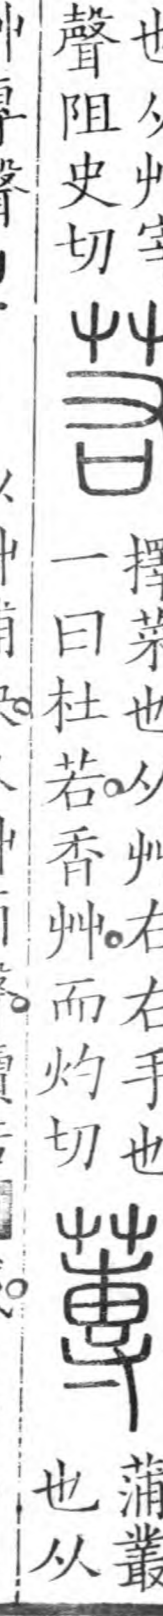 也从艸宰
聲阻史切
若
擇菜也从艸右右手也
一曰杜若香艸而灼切
蓴
蒲叢
也从
艸專聲